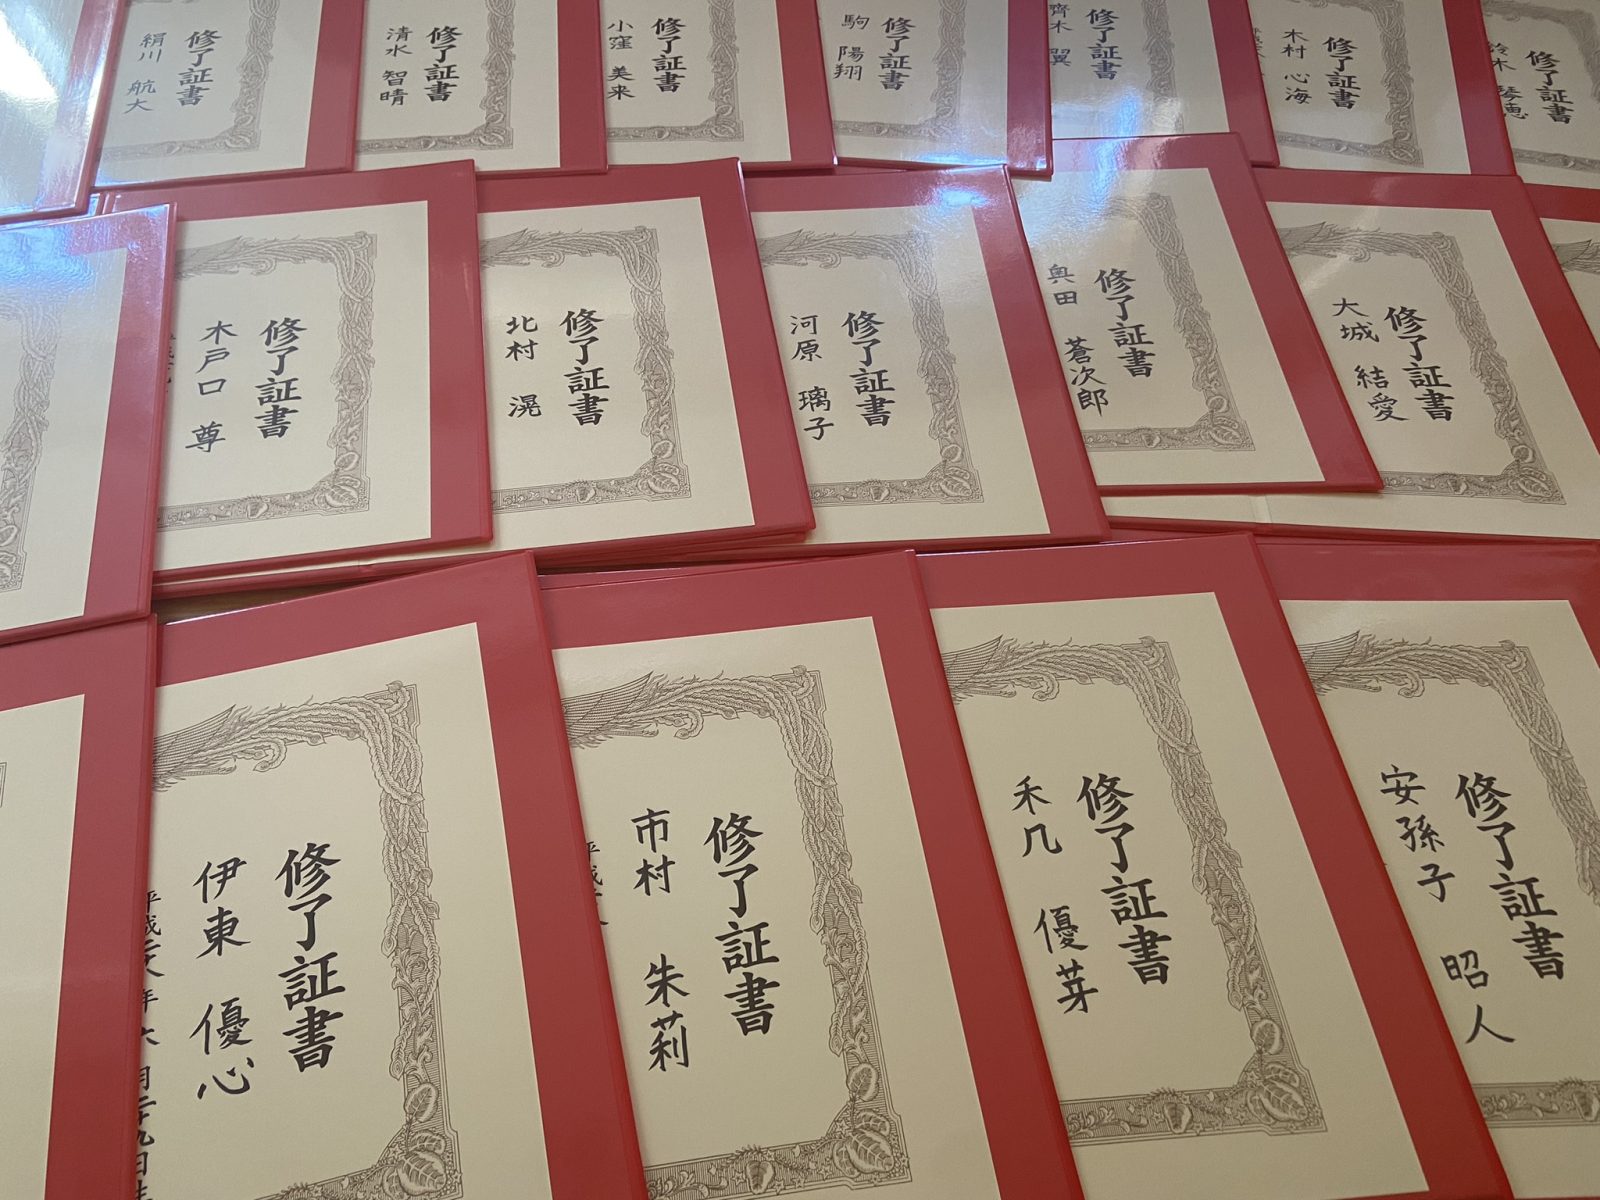 修了証書
絹川 航大
修了証書
清水 智晴
修了証書
小窪 美来
修了証書
駒 陽翔
修了証書
齊木 翼
修了証書
木村 心海
修了証書
鈴木 琴恵
修了証書
木戸口 尊
修了証書
北村 滉
修了証書
河原 璃子
修了証書
奥田 蒼次郎
修了証書
大城 結愛
修了証書
伊東 優心
平成二十八年六月二十九日生
修了証書
市村 朱莉
平成十八
修了証書
禾几 優芽
修了証書
安孫子 昭人